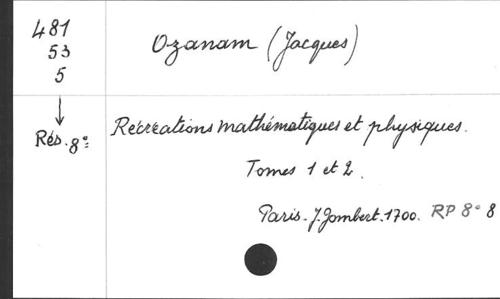 481
53
5
Rés. 8º
Ozanam (Jacques)
Récréations mathématiques et physiques.
Tomes 1 et 2.
Paris. J. Jombert. 1700. RP 8º 8